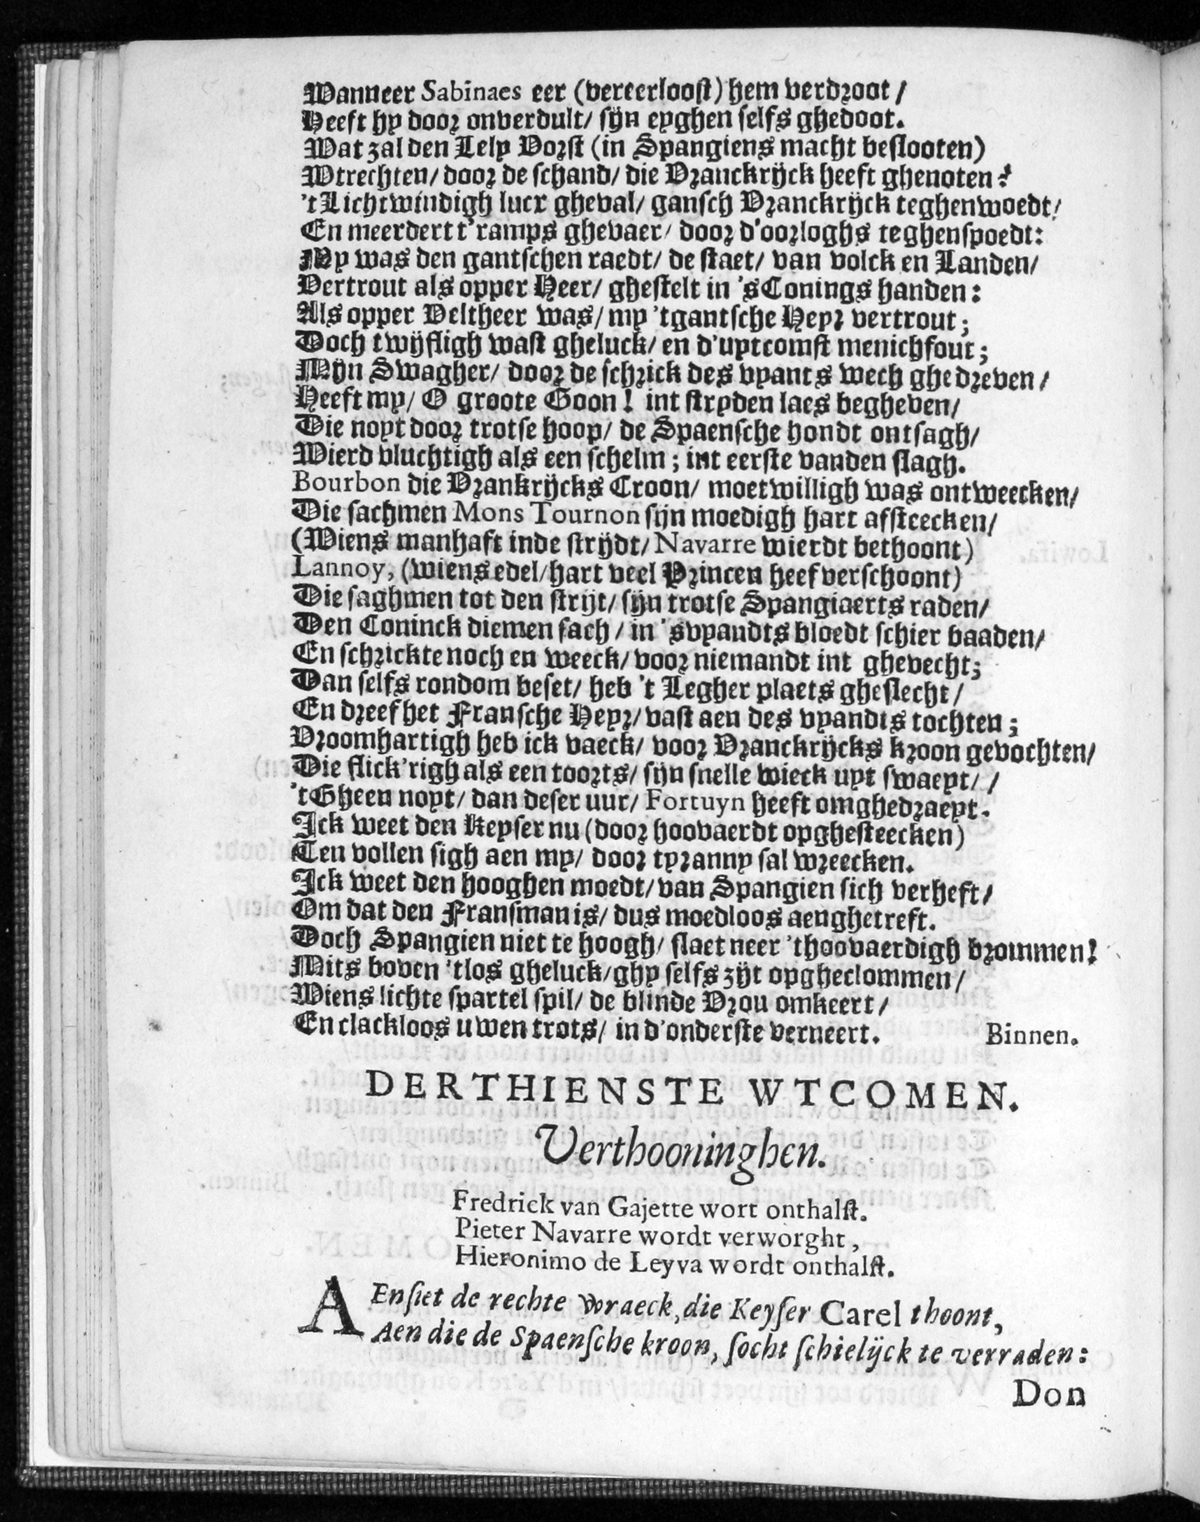 Wanneer Sabinaes eer (vereerloost) hem verdroot /
Heeft hy door onverdult / sijn eyghen selfs ghedoot.
Wat zal den Lely Vorst (in Spangiens macht beslooten)
Wtrechten / door de schand / die Vranckrijck heeft ghenoten?
't Lichtwindigh lucx gheval / gansch Vranckrijck teghenwoedt /
En meerdert t'ramps ghevaer / door d'oorloghs teghenspoedt:
My was den gantschen raedt / de staet / van volck en Landen /
Vertrout als opper Heer / ghestelt in 's Conings handen:
Als opper Veltheer was / my 'tgantsche Heyr vertrout;
Doch twijfligh wast gheluck / en d'uytcomst menichfout;
Mijn Swagher / door de schrick des vyants wech ghedreven /
Heeft my / O groote Goon! int stryden laes begheven /
Die noyt door trotse hoop / de Spaensche hondt ontsagh /
Wierd vluchtigh als een schelm; int eerste vanden slagh.
Bourbon die Vrankrijcks Croon / moetwilligh was ontweecken /
Die sachmen Mons Tournon sijn moedigh hart afsteecken /
(Wiens manhaft inde strijdt / Navarre wierdt bethoont)
Lannoy, (wiens edel / hart veel Princen heef verschoont)
Die saghmen tot den strijt / sijn trotse Spangiaerts raden /
Den Coninck diemen sach / in 'svyandts bloedt schier baaden /
En schrickte noch en weeck / voor niemandt int ghevecht;
Dan selfs rondom beset / heb 't Legher plaets gheslecht /
En dreef het Fransche Heyr / vast aen des vyandts tochten;
Vroomhartigh heb ick vaeck / voor Vranckrijcks kroon gevochten /
Die flick'righ als een toorts / sijn snelle wieck uyt swaeyt / /
't Gheen noyt / dan deser uur / Fortuyn heeft omghedraeyt.
Ick weet den Keyser nu (door hoovaerdt opghesteecken)
Ten vollen sigh aen my / door tyranny sal wreecken.
Ick weet den hooghen moedt / van Spangien sich verheft /
Om dat den Fransman is / dus moedloos aenghetreft.
Doch Spangien niet te hoogh / slaet neer 'thoovaerdigh brommen!
Mits boven 'tlos gheluck / ghy selfs zijt opgheclommen /
Wiens lichte spartel spil / de blinde Vrou omkeert /
En clackloos uwen trots / in d'onderste verneert. Binnen.
DERTHIENSTE WTCOMEN.
Verthooninghen.
Fredrick van Gajette wort onthalst.
Pieter Navarre wordt verworght,
Hieronimo de Leyva wordt onthalst.
AEnsiet de rechte wraeck, die Keyser Carel thoont,
Aen die de Spaensche kroon, socht schielijck te verraden:
Don